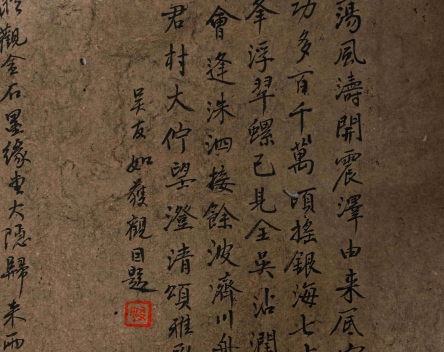 蕩風濤開震澤由来底
功多百千萬頃搖銀海七十
峯浮翠螺已見全吳沾潤
會逢洙泗接餘波濟川舟
君村大佇望澄清頌雅
吳友如獲觀目題
觀金石墨緣
大隱歸来雨